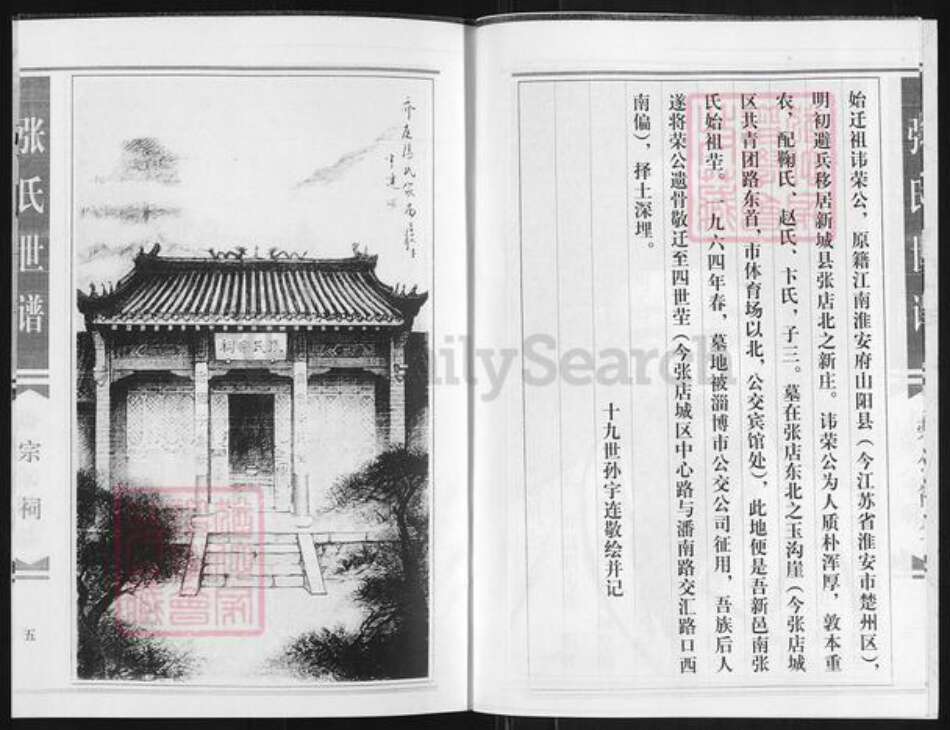 始迁祖讳荣公，原籍江南淮安府山阳县（今江苏省淮安市楚州区），
明初避兵移居新城县张店北之新庄。讳荣公为人质朴浑厚，敦本重
农，配鞠氏、赵氏、卞氏，子三。墓在张店东北之玉沟崖（今张店城
区共青团路东首，市体育场以北，公交宾馆处），此地便是吾新邑南张
氏始祖茔。一九六四年春，墓地被淄博市公交公司征用，吾族后人
遂将荣公遗骨敬迁至四世茔（今张店城区中心路与潘南路交汇路口西
南偏），择土深埋。
十九世孙宇连敬绘并记
张氏宗祠
张氏世谱
宗祠
五
FamilySearch